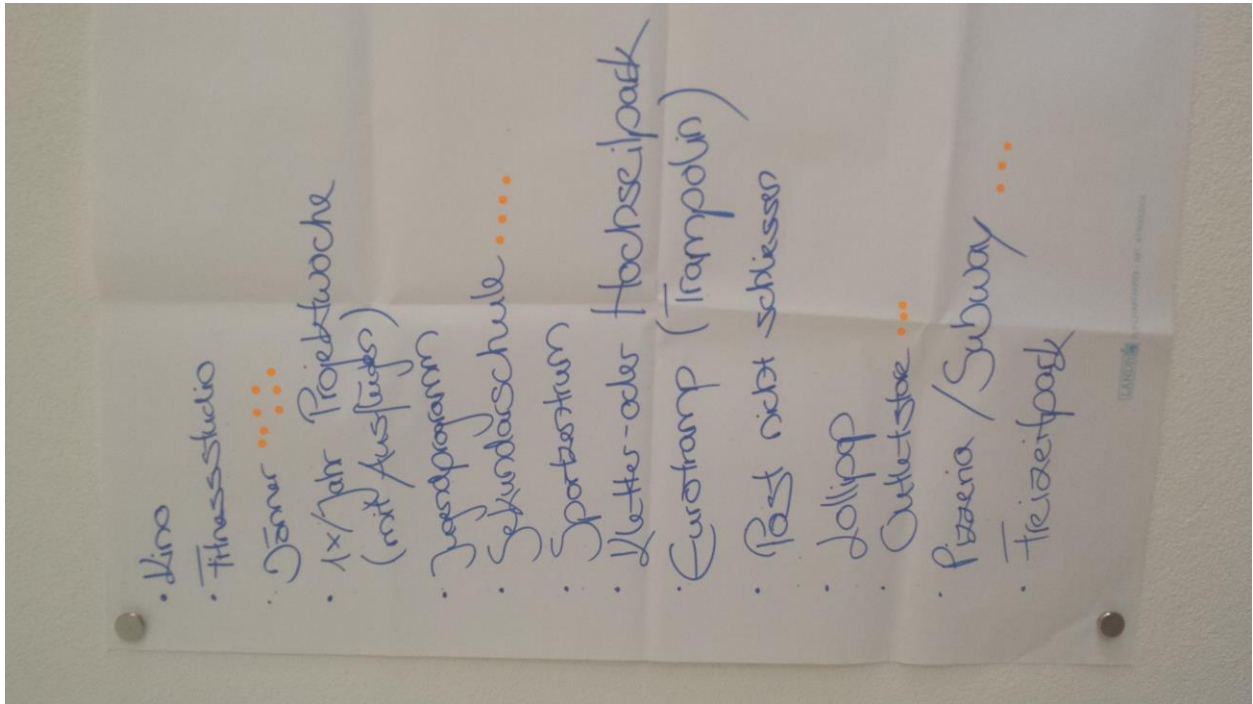 • Kino
• Fitnessstudio
• Dönner
• 1x/Jahr Projektwoche
(mit Ausflüger)
• Jugendprogramm
• Sekundarschule
• Sportzentrum
• Kletter-oder Hochseilpark
• Eurotramp (Trampolin)
• Post nicht schliessen
• Lollipop
• Outletstore
• Pizzeria / Subway
• Freizeitpark